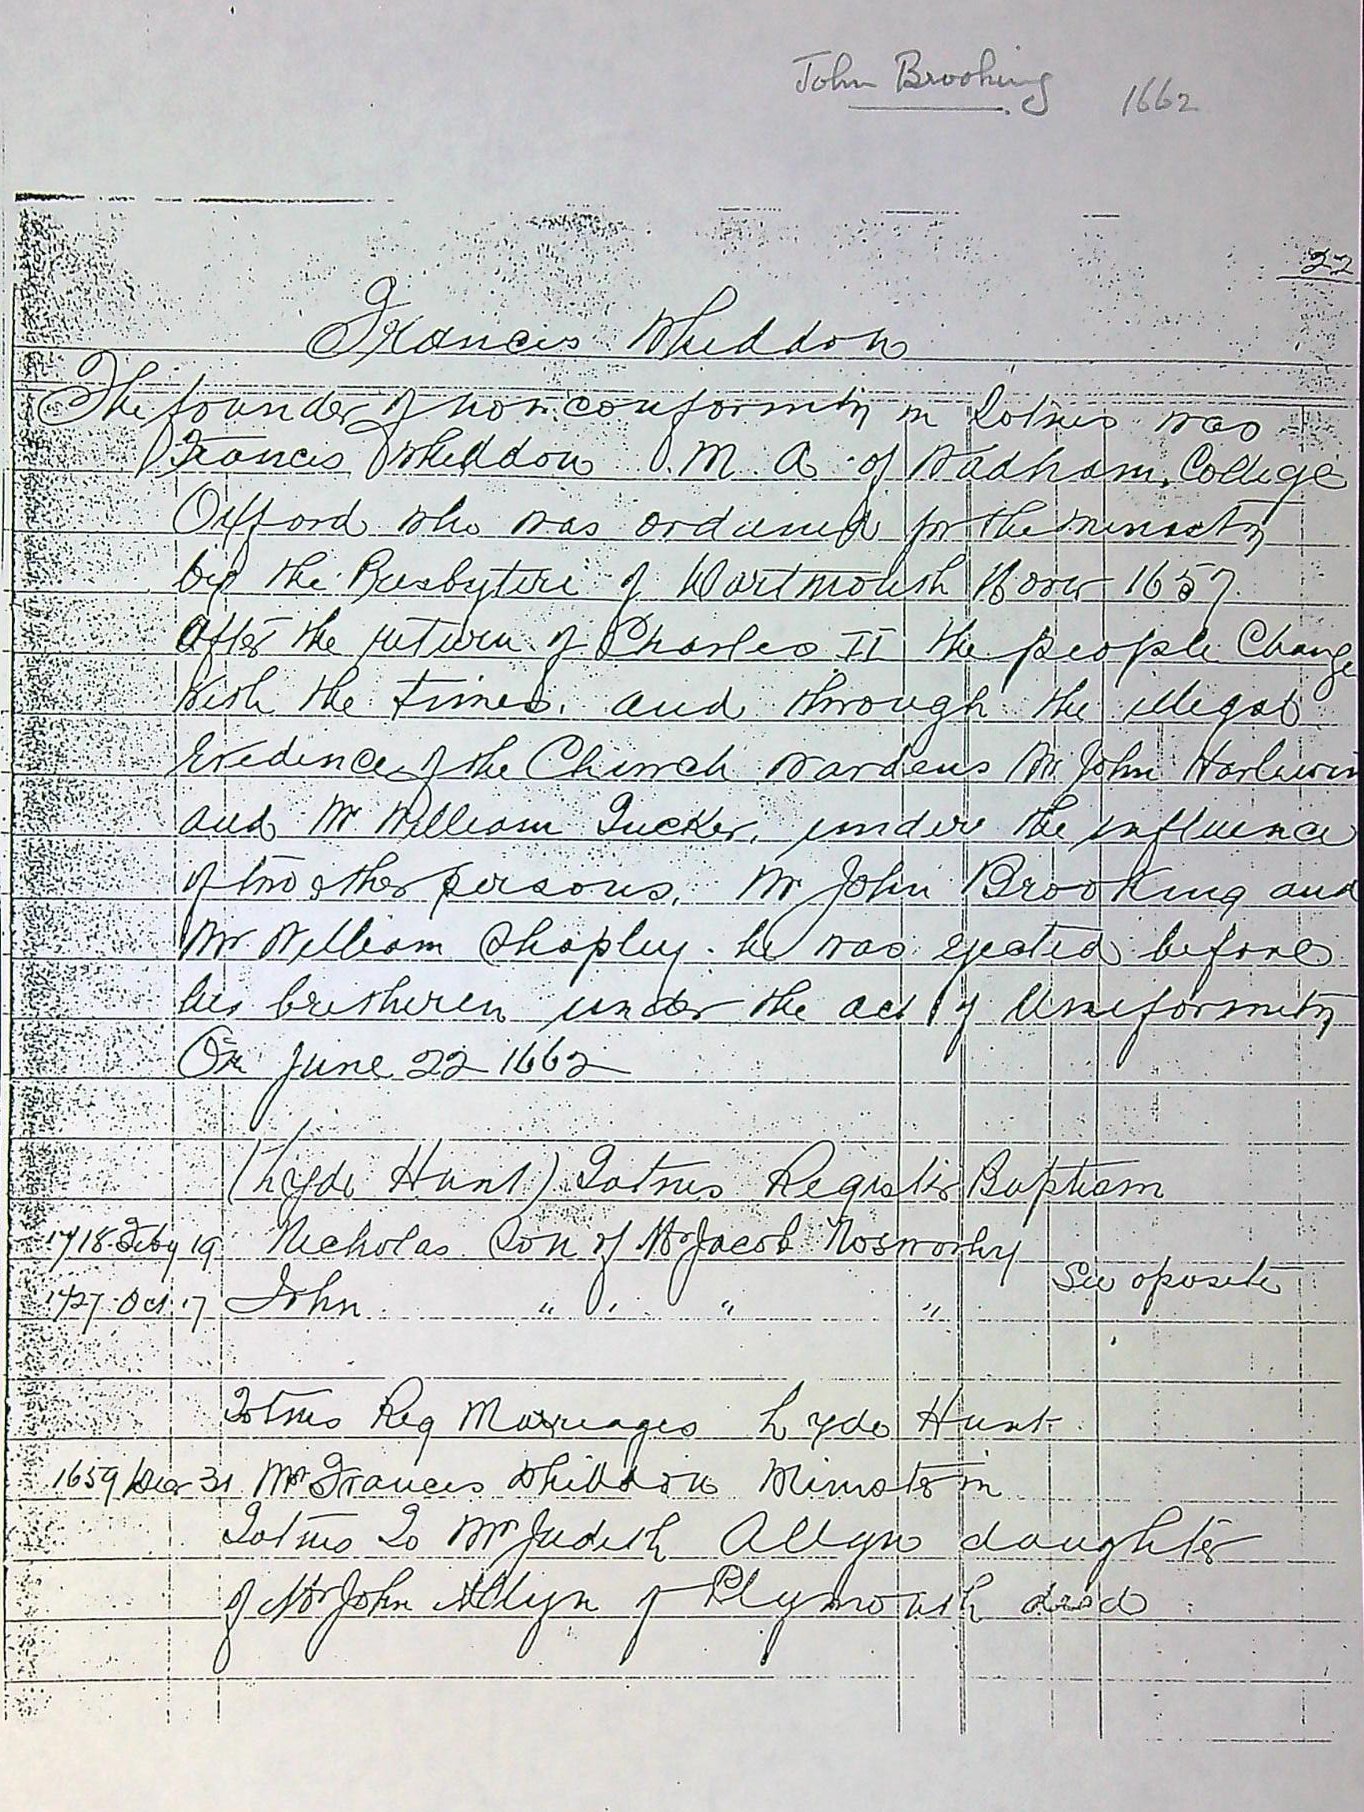 John Brooking 1662
22
Francis Whiddon
The founder of non conformity in Totnes was
Francis Whiddon M A of Wadham College
Oxford who was ordained for the ministry
by the Presbyteri of Dartmouth Novr 1657.
After the return of Charles II the people Change
with the times. and through the illegal
Evidence of the Church wardens Mr John Harlewin
and Mr William Tucker, under the influence
of two other persons, Mr John Brooking and
Mr William Shapley. he was ejected before
his bretheren under the act of Uniformity
On June 22 1662
(Lyde Hunt) Totnes Register Baptism
1718 Feby 19 Nicholas Son of Mr Jacob Nosworthy
See oposite
1727 Oct 17 John " " " "
Totnes Reg Marriages Lyde Hunt
1659 Decr 31 Mr Francis Whiddon Minister in
Totnes To Mrs Judith Allyn daughter
of Mr John Allyn of Plymouth decd